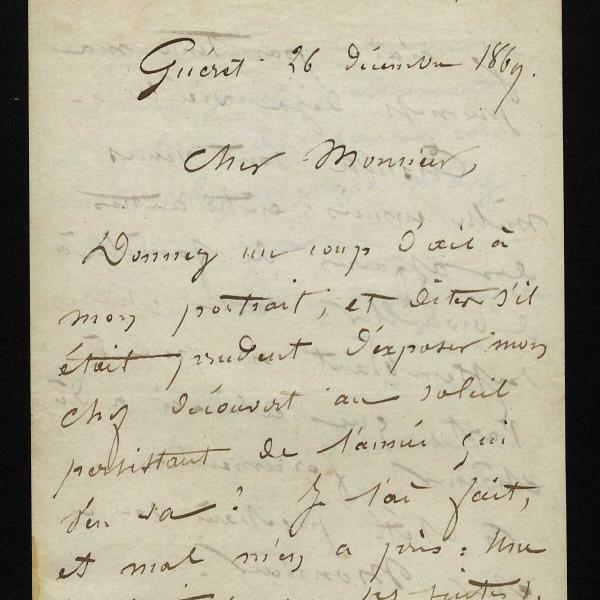 Guéret 26 décembre 1869.
Cher Monsieur,
Donnez un coup d'œil à
mon portrait, et dites s'il
était prudent d'exposer mon
chef découvert au soleil
persistant de l'année qui
s'en va ? Je l'ai fait,
et mal m'en a pris : Une